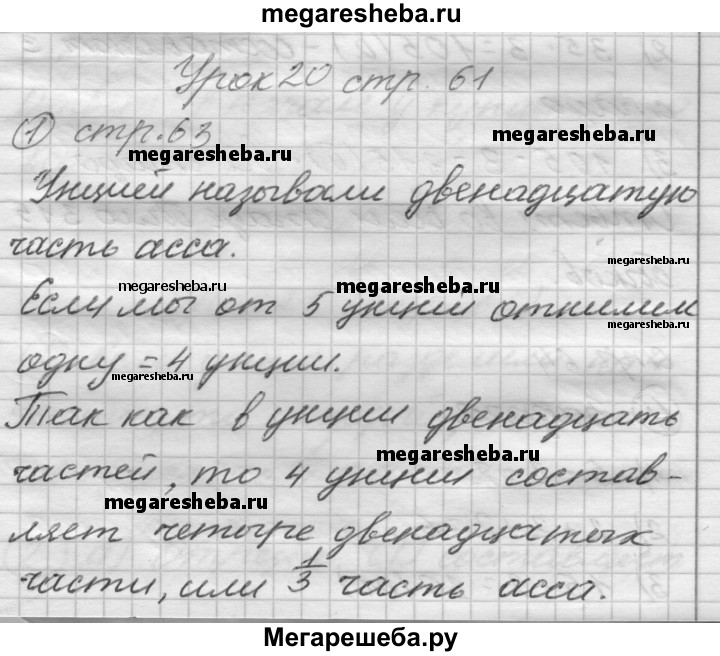 megaresheba.ru
Урок 20 стр. 61
① стр. 63
megaresheba.ru
megaresheba.ru
Унцией называли двенадцатую
часть асса.
megaresheba.ru
megaresheba.ru
megaresheba.ru
Если мы от 5 унций отнимим
megaresheba.ru
одну = 4 унции.
megaresheba.ru
Так как в унции двенадцать
megaresheba.ru
частей, то 4 унции состав-
megaresheba.ru
ляет четыре двенадцатых
части, или 1/3 часть асса.
Мегарешеба.ру